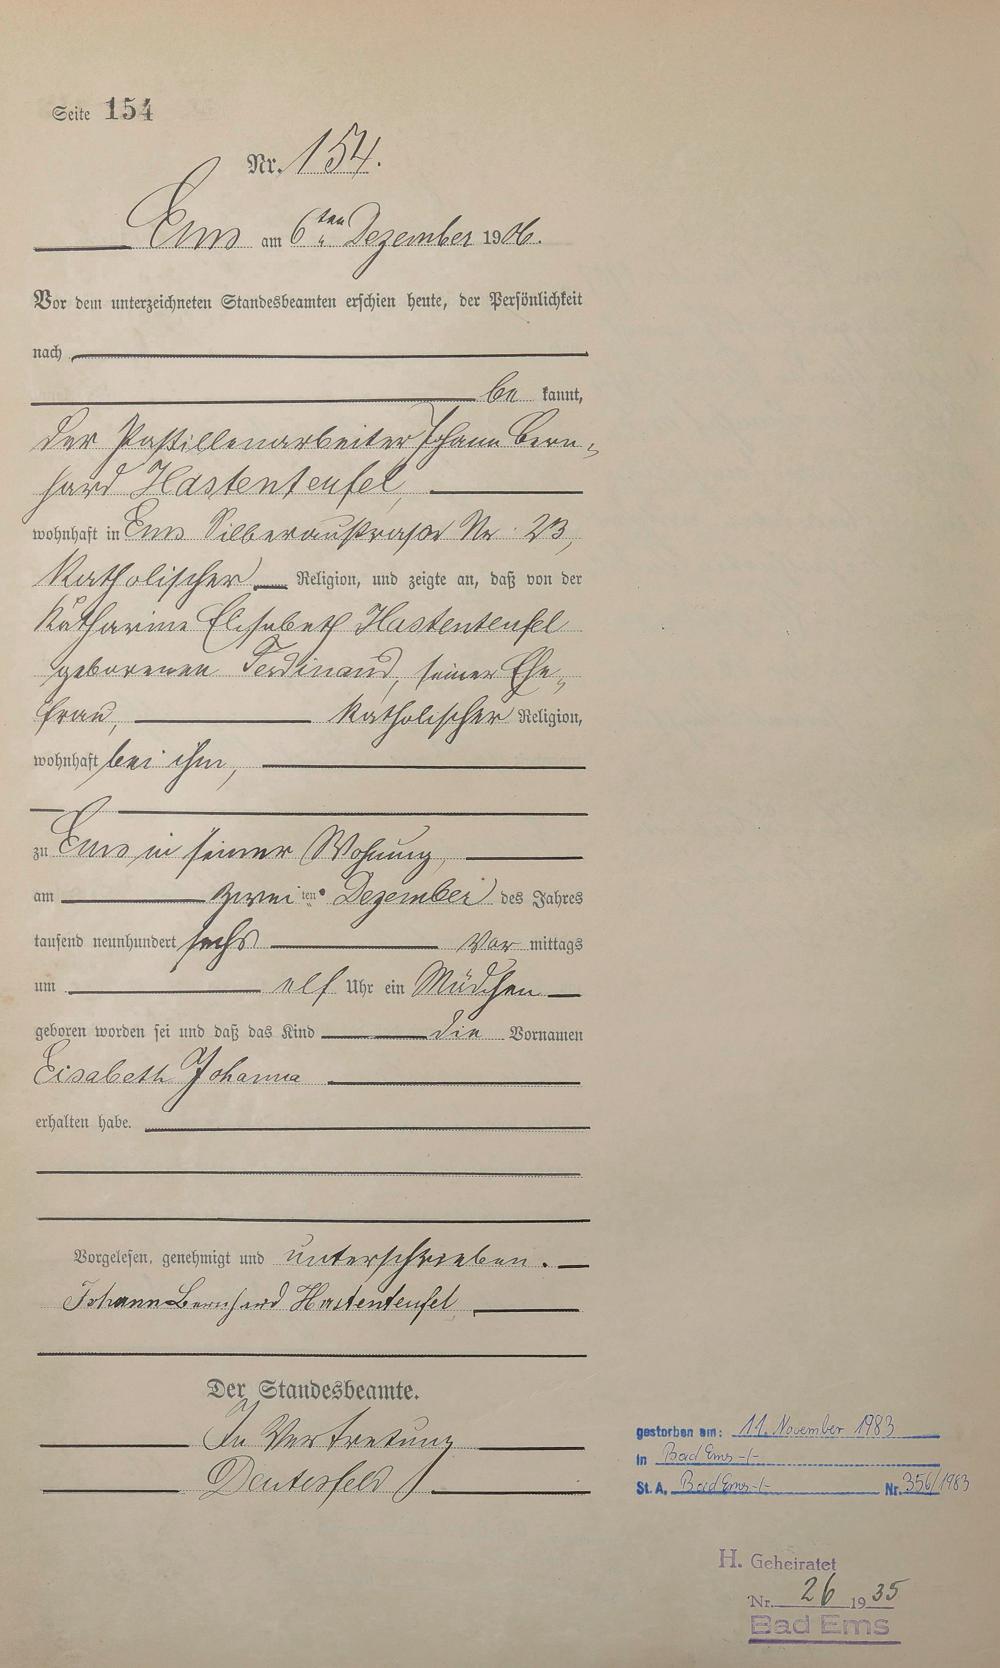 Seite 154
Nr. 154.
Ems am 6ten Dezember 1906.
Vor dem unterzeichneten Standesbeamten erschien heute, der Persönlichkeit
nach
be kannt,
der Pastillenarbeiter Johann Bern-
hard Hastenteufel,
wohnhaft in Ems Silberaustraße Nr. 23,
katholischer Religion, und zeigte an, daß von der
Katharina Elisabeth Hastenteufel
geborenen Ferdinand, seiner Ehe-
frau, katholischer Religion,
wohnhaft bei ihm,
zu Ems in seiner Wohnung,
am zweiten Dezember des Jahres
tausend neunhundert sechs Vor mittags
um elf Uhr ein Mädchen
geboren worden sei und daß das Kind die Vornamen
Eisabeth Johanna
erhalten habe.
Vorgelesen, genehmigt und unterschrieben.
Johann Bernhard Hastenteufel
Der Standesbeamte.
In Vertretung
gestorben am: 11. November 1983
in Bad Ems -/-
St. A. Bad Ems -/- Nr. 356/1983
H. Geheiratet
Nr. 26 1935
Bad Ems